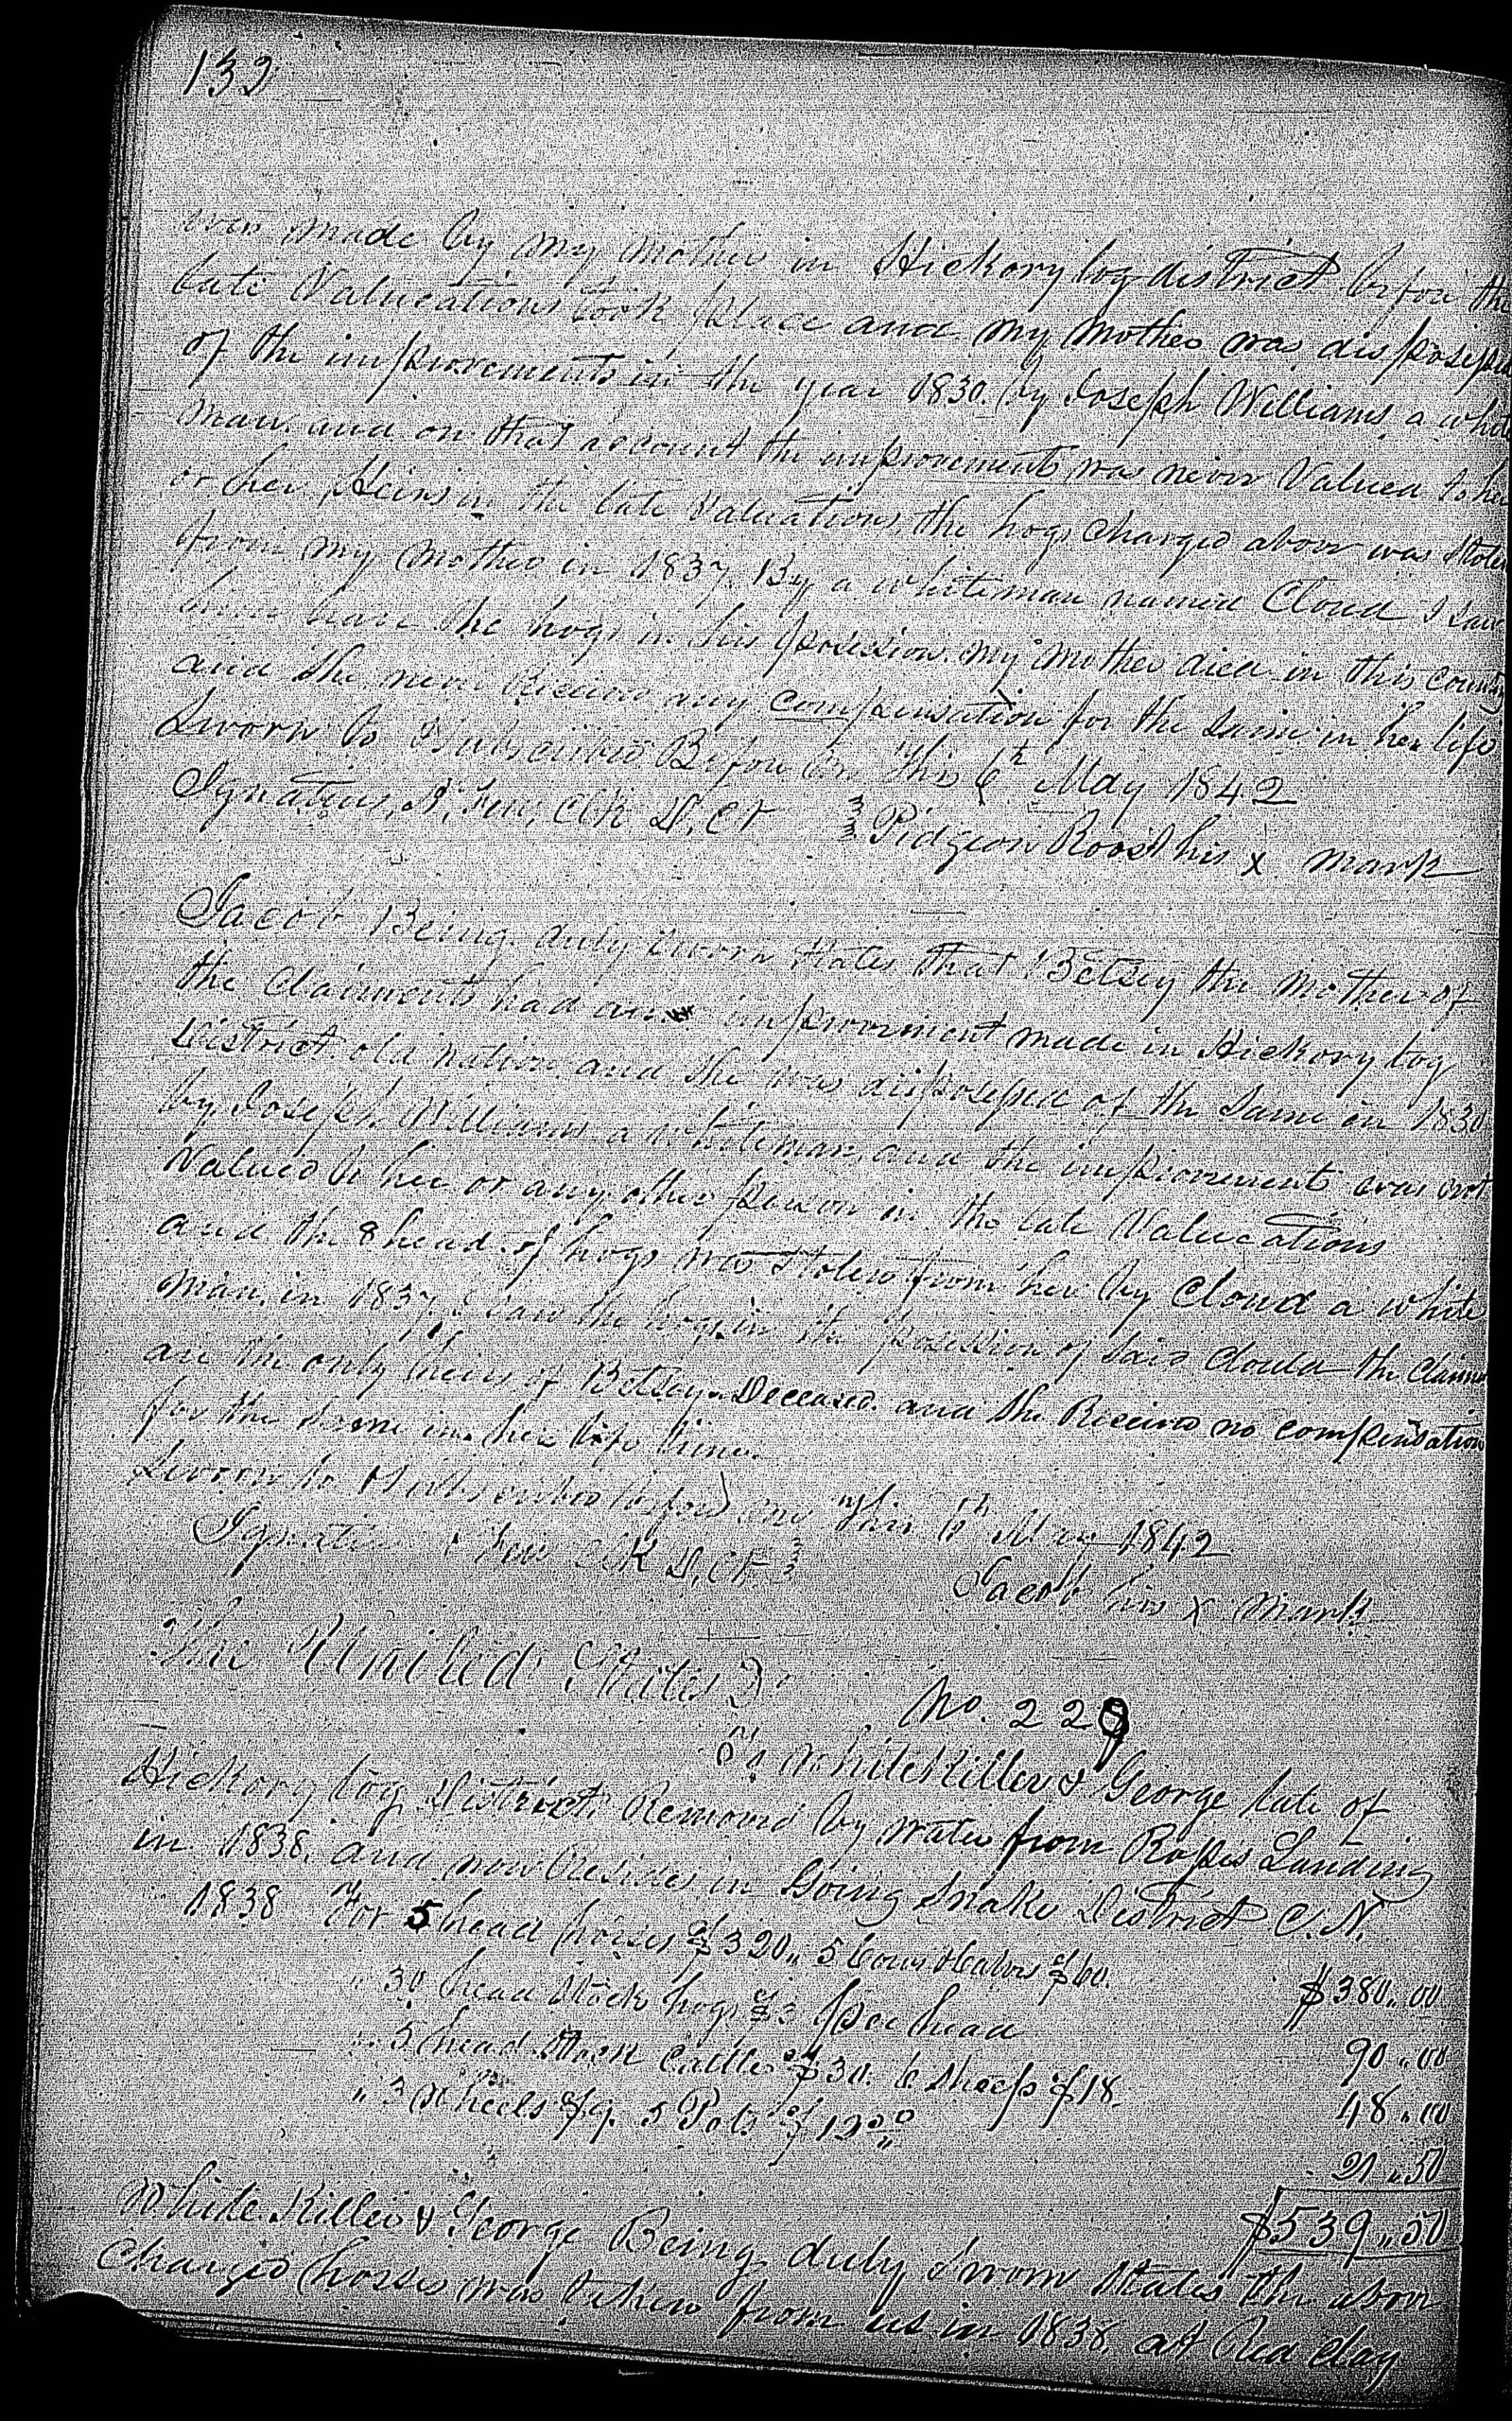 132
ever made by my mother in Hickory log district before the
late Valuations took place and my mother was disposessed
of the improvements in the year 1830. by Joseph Williams a white
man. and on that account the improvements was never Valued to her
or her Heirs in the late Valuations, the hogs charged above was stolen
from my mother in 1837 By a whiteman named Cloud I saw
the hogs in his posession. my mother died in this country
and she never Received any compensation for the same in her life
Sworn to & subscribed Before me This 6th May 1842
Ignatius A. Few, Clk D. Ct } Pidgeon Roost his x mark
Jacob Being duly sworn states that Betsey the mother of
the claimants had an improvement made in Hickory log
District old nation and she was disposessed of the same in 1830
by Joseph Williams a whiteman, and the improvements was not
Valued to her or any other person in the late Valuations
and the 8 head of hogs was stolen from her by Cloud a white
man. in 1837. I saw the hogs in the posession of said Clould the Claim
are the only heirs of Betsey Deceased. and she Received no compensation
for the same in her life time.
Sworn to & subscribed before me This 6th May 1842
Ignatius Few Clk D. Ct. }
Jacob his x mark
The United States }
No. 229
To White Killer & George late of
Hickory log District Removed by water from Rosses Landing
in 1838. and now Resides in Going Snake District C. N.
1838 For 5 head horses $320,, 5 Cows & Calves $60. $380,,00
,, 30 head stock hogs $3 per head 90,,00
,, 5 head stock cattle $30. 6 sheep $18. 48,,00
,, 3 Wheels $9. 5 Pots $12 50 21,,50
$539,,50
White Killer & George Being duly sworn states the above
Charged horses was taken from us in 1838. at Red Clay